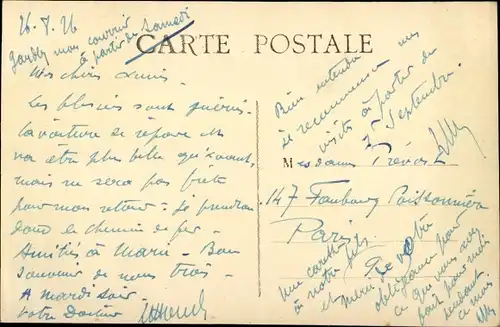 26.8.26
Gardez mon courrier
à partir de Samedi
CARTE POSTALE
Mes chers Amis.
Les blessés sont guéris.
la voiture se répare et
va être plus belle qu'avant,
mais ne sera pas prête
pour mon retour : je prendrai
donc le chemin de fer.
Amitiés à Marie - Bon
souvenir de nous trois.
A Mardi soir.
Votre Docteur
Bien entendu
je recommence mes
visites à partir du
Septembre.
Mesdames Prévost
147 Faubourg Poissonnière
Paris
Une carte
à notre fils
et merci de votre
obligeance pour
ce que vous avez
fait pour moi
pendant
ce mois